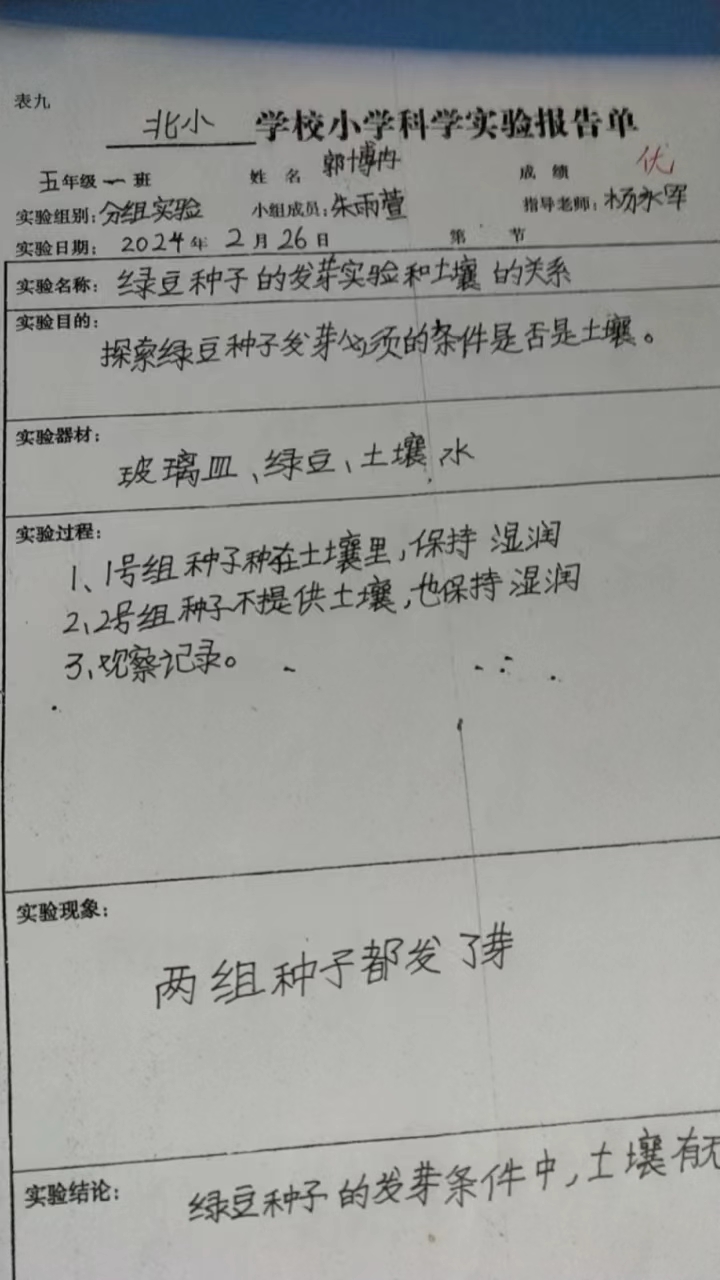 表九
北小 学校小学科学实验报告单
五年级一班 姓名 郭博冉 成绩 优
实验组别:分组实验 小组成员:朱雨萱 指导老师:杨永军
实验日期: 2024年 2月26日 第 节
实验名称: 绿豆种子的发芽实验和土壤的关系
实验目的:
探索绿豆种子发芽必须的条件是否是土壤。
实验器材:
玻璃皿、绿豆、土壤 水
实验过程:
1、1号组种子种在土壤里,保持湿润
2、2号组种子不提供土壤,也保持湿润
3、观察记录。
实验现象:
两组种子都发了芽
实验结论: 绿豆种子的发芽条件中,土壤有无